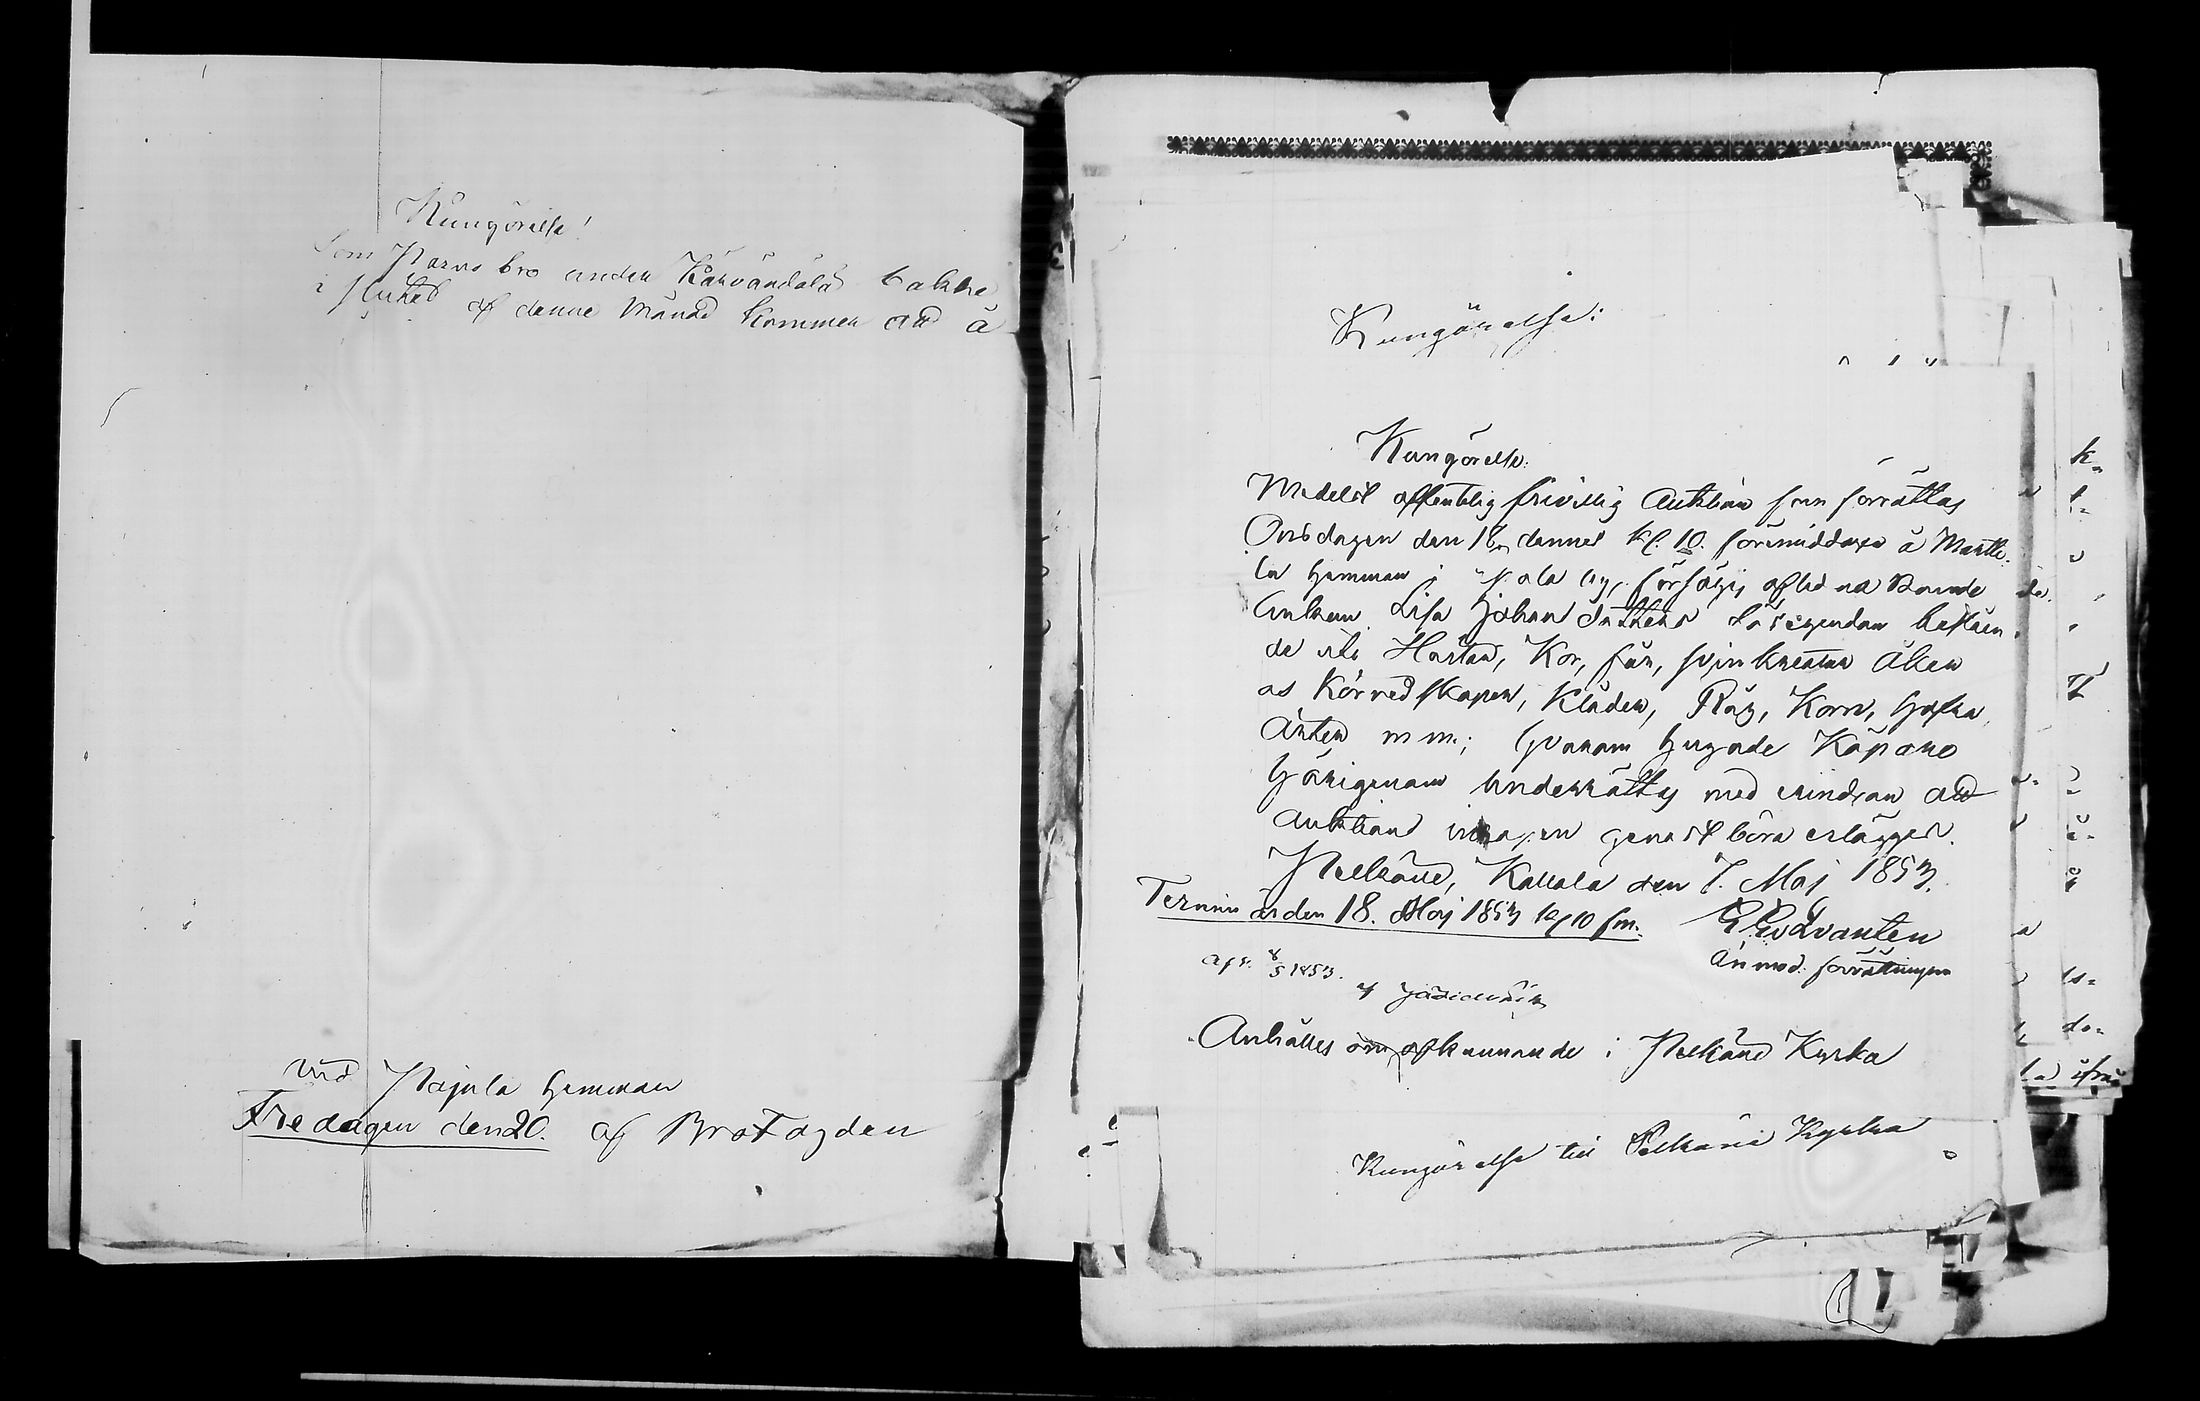 Kungörelse!
Som Parvis bro under Kärvändälä bakke
i slutet af denne Månad kommer att å
Vid Pajula hemman
Fredagen den 20. af Brotagden
Kungörelse:
Kungörelse.
Medelst offentelig frivillig Auktion som förrättas
Onsdagen den 18 dennes kl. 10. föremiddagen å Martti-
la hemman i by, försäljes aflidna Bonde
Enkan Lisa Johans dotters lösegendom beståen-
de uti Hästar, Kor, får, svin kreatur Åker
os Körredskaper, Kläder, Råg, Korn, hafra,
Ärter m m.; hvarom hugade Köpare
härigenom underrättas med erindran att
auktions inropen genast böra erläggas.
Pelkäne, Kallala den 7. Maj 1853.
Termin är den 18. Maj 1853 kl 10 fm.
E Evdvanten
Anmod. förrättningsm
1853.
Anhålles om afkunnande i Pelkäne Kyrka
Kungörelse till Pelkäne Kyrka